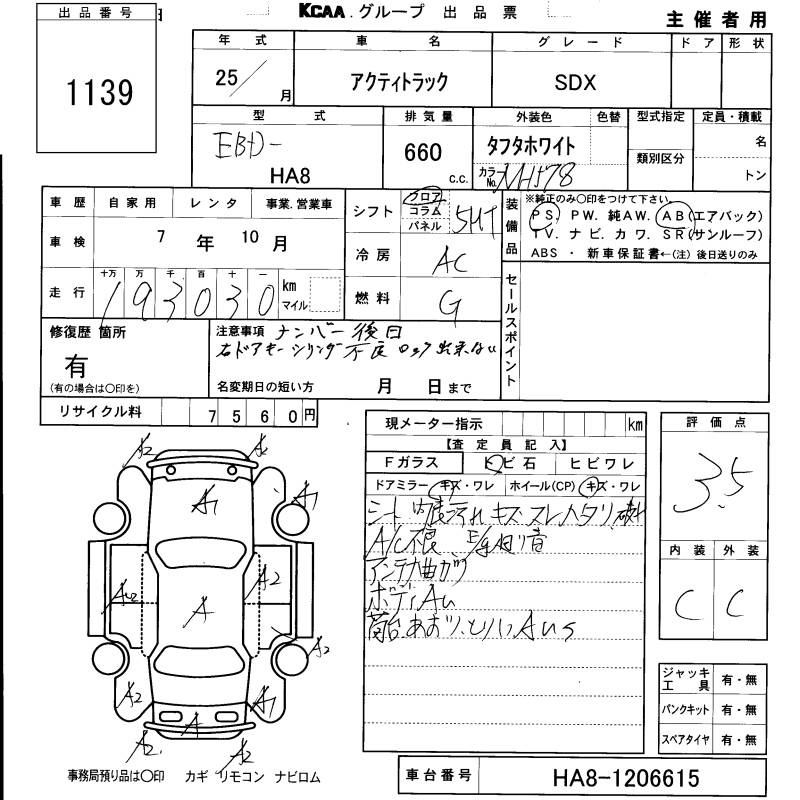 出品番号
KCAA.グループ 出品票
主催者用
1139
年式 車名 グレード ドア 形状
25/月 アクティトラック SDX
型式 排気量 外装色 色替 型式指定 定員・積載
EBD- HA8
660 c.c.
タフタホワイト
カラーNo. NH578
類別区分
名
トン
車歴 自家用 レンタ 事業.営業車
シフト フロア コラム パネル 5MT
装備品
※純正のみ○印をつけて下さい。
PS. PW. 純AW. AB(エアバック)
TV. ナビ. カワ. SR(サンルーフ)
ABS ・ 新車保証書←(注) 後日送りのみ
車検 7年 10月
冷房 AC
走行 十万 万 千 百 十 一
193030 km マイル
燃料 G
セールスポイント
修復歴 箇所
有
(有の場合は○印を)
注意事項 ナンバー後日
右ドアキーシリンダ不良 ロック出来ない
名変期日の短い方 月 日まで
リサイクル料 7560円
現メーター指示 km
【査定員記入】
Fガラス トビ石 ヒビワレ
ドアミラー キズ・ワレ ホイール(CP) キズ・ワレ
シート 内張 キズ スレ ヘタリ
A/C不良 E/g回り音
アンテナ曲がり
ボディAu
荷台.あおり.とりいAus
評価点
3.5
内装 外装
C C
A2 A
A1 A1
A2 A2
A
A2
A2 A1
A
A2 A2
ジャッキ工具 有・無
パンクキット 有・無
スペアタイヤ 有・無
事務局預り品は○印 カギ リモコン ナビロム
車台番号 HA8-1206615